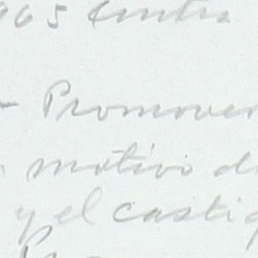 965 Contra
- Promover
motivo de
y el castig